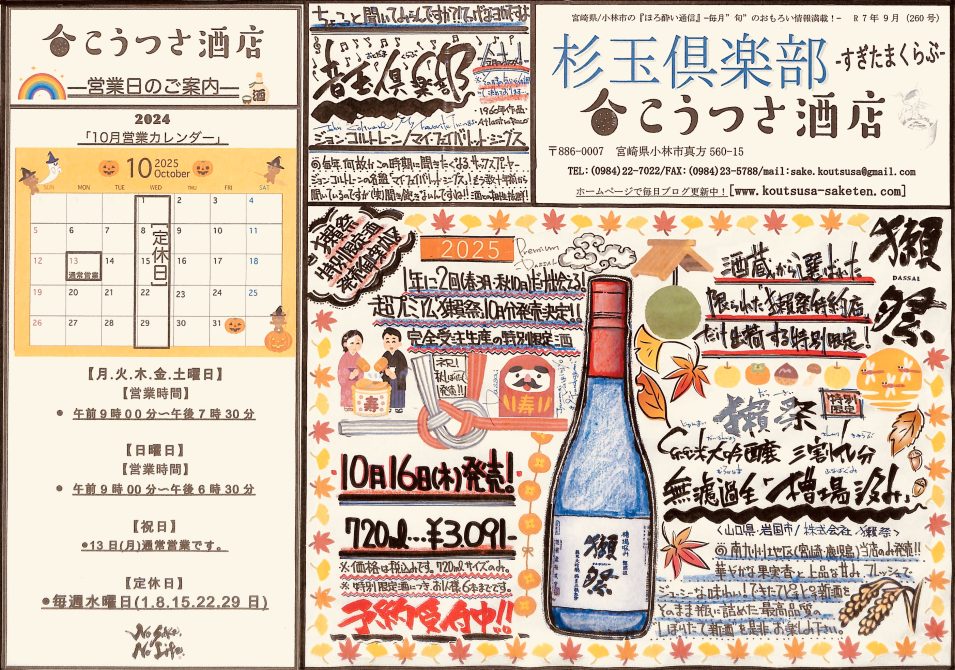 こうつさ酒店
酒
―営業日のご案内―
2024
「10月営業カレンダー」
10 2025 October
SUN MON TUE WED THU FRI SAT
1 2 3 4
5 6 7 8 9 10 11
12 13 14 15 16 17 18
19 20 21 22 23 24 25
26 27 28 29 30 31
【定休日】
通常営業
【月.火.木.金.土曜日】
【営業時間】
● 午前9時00分〜午後7時30分
【日曜日】
【営業時間】
● 午前9時00分〜午後6時30分
【祝日】
●13日(月)通常営業です。
【定休日】
●毎週水曜日(1.8.15.22.29日)
No Sake,
No Life.
音玉倶楽部
1960年作品
ジョン・コルトレーン/マイ・フェイバリット・シングス
宮崎県/小林市の『ほろ酔い通信』-毎月"旬"のおもろい情報満載!- R7年9月(260号)
杉玉倶楽部 -すぎたまくらぶ-
こうつさ酒店
〒886-0007 宮崎県小林市真方560-15
TEL:(0984)22-7022/FAX:(0984)23-5788/mail:sake.koutsusa@gmail.com
ホームページで毎日ブログ更新中![www.koutsusa-saketen.com]
2025
Premium DASSAI
1年に2回(春3月・秋10月)だけ出会える!
超プレミアム獺祭、10月分発売決定!!
完全受注生産の特別限定酒
寿
祝!
寿
10月16日(木)発売!
720ml…¥3,091-
※価格は税込みです。720mlサイズのみ。
※特別限定酒につき、お1人様6本までです。
予約受付中!!
獺祭
獺祭
DASSAI
酒蔵から選ばれた
限られた「獺祭特約店」
だけ出荷する特別限定!
獺祭
特別限定
純米大吟醸 三割九分
無濾過生「槽場汲み」
〈山口県・岩国市/株式会社 獺祭〉
◎南九州地区(宮崎・鹿児島)当店のみ発売!!
華やかな果実香と上品な甘み、フレッシュで
ジューシーな味わい!できたてひと2の新酒を
そのまま瓶に詰めた最高品質の
しぼりたて新酒を是非お楽しみ下さい。